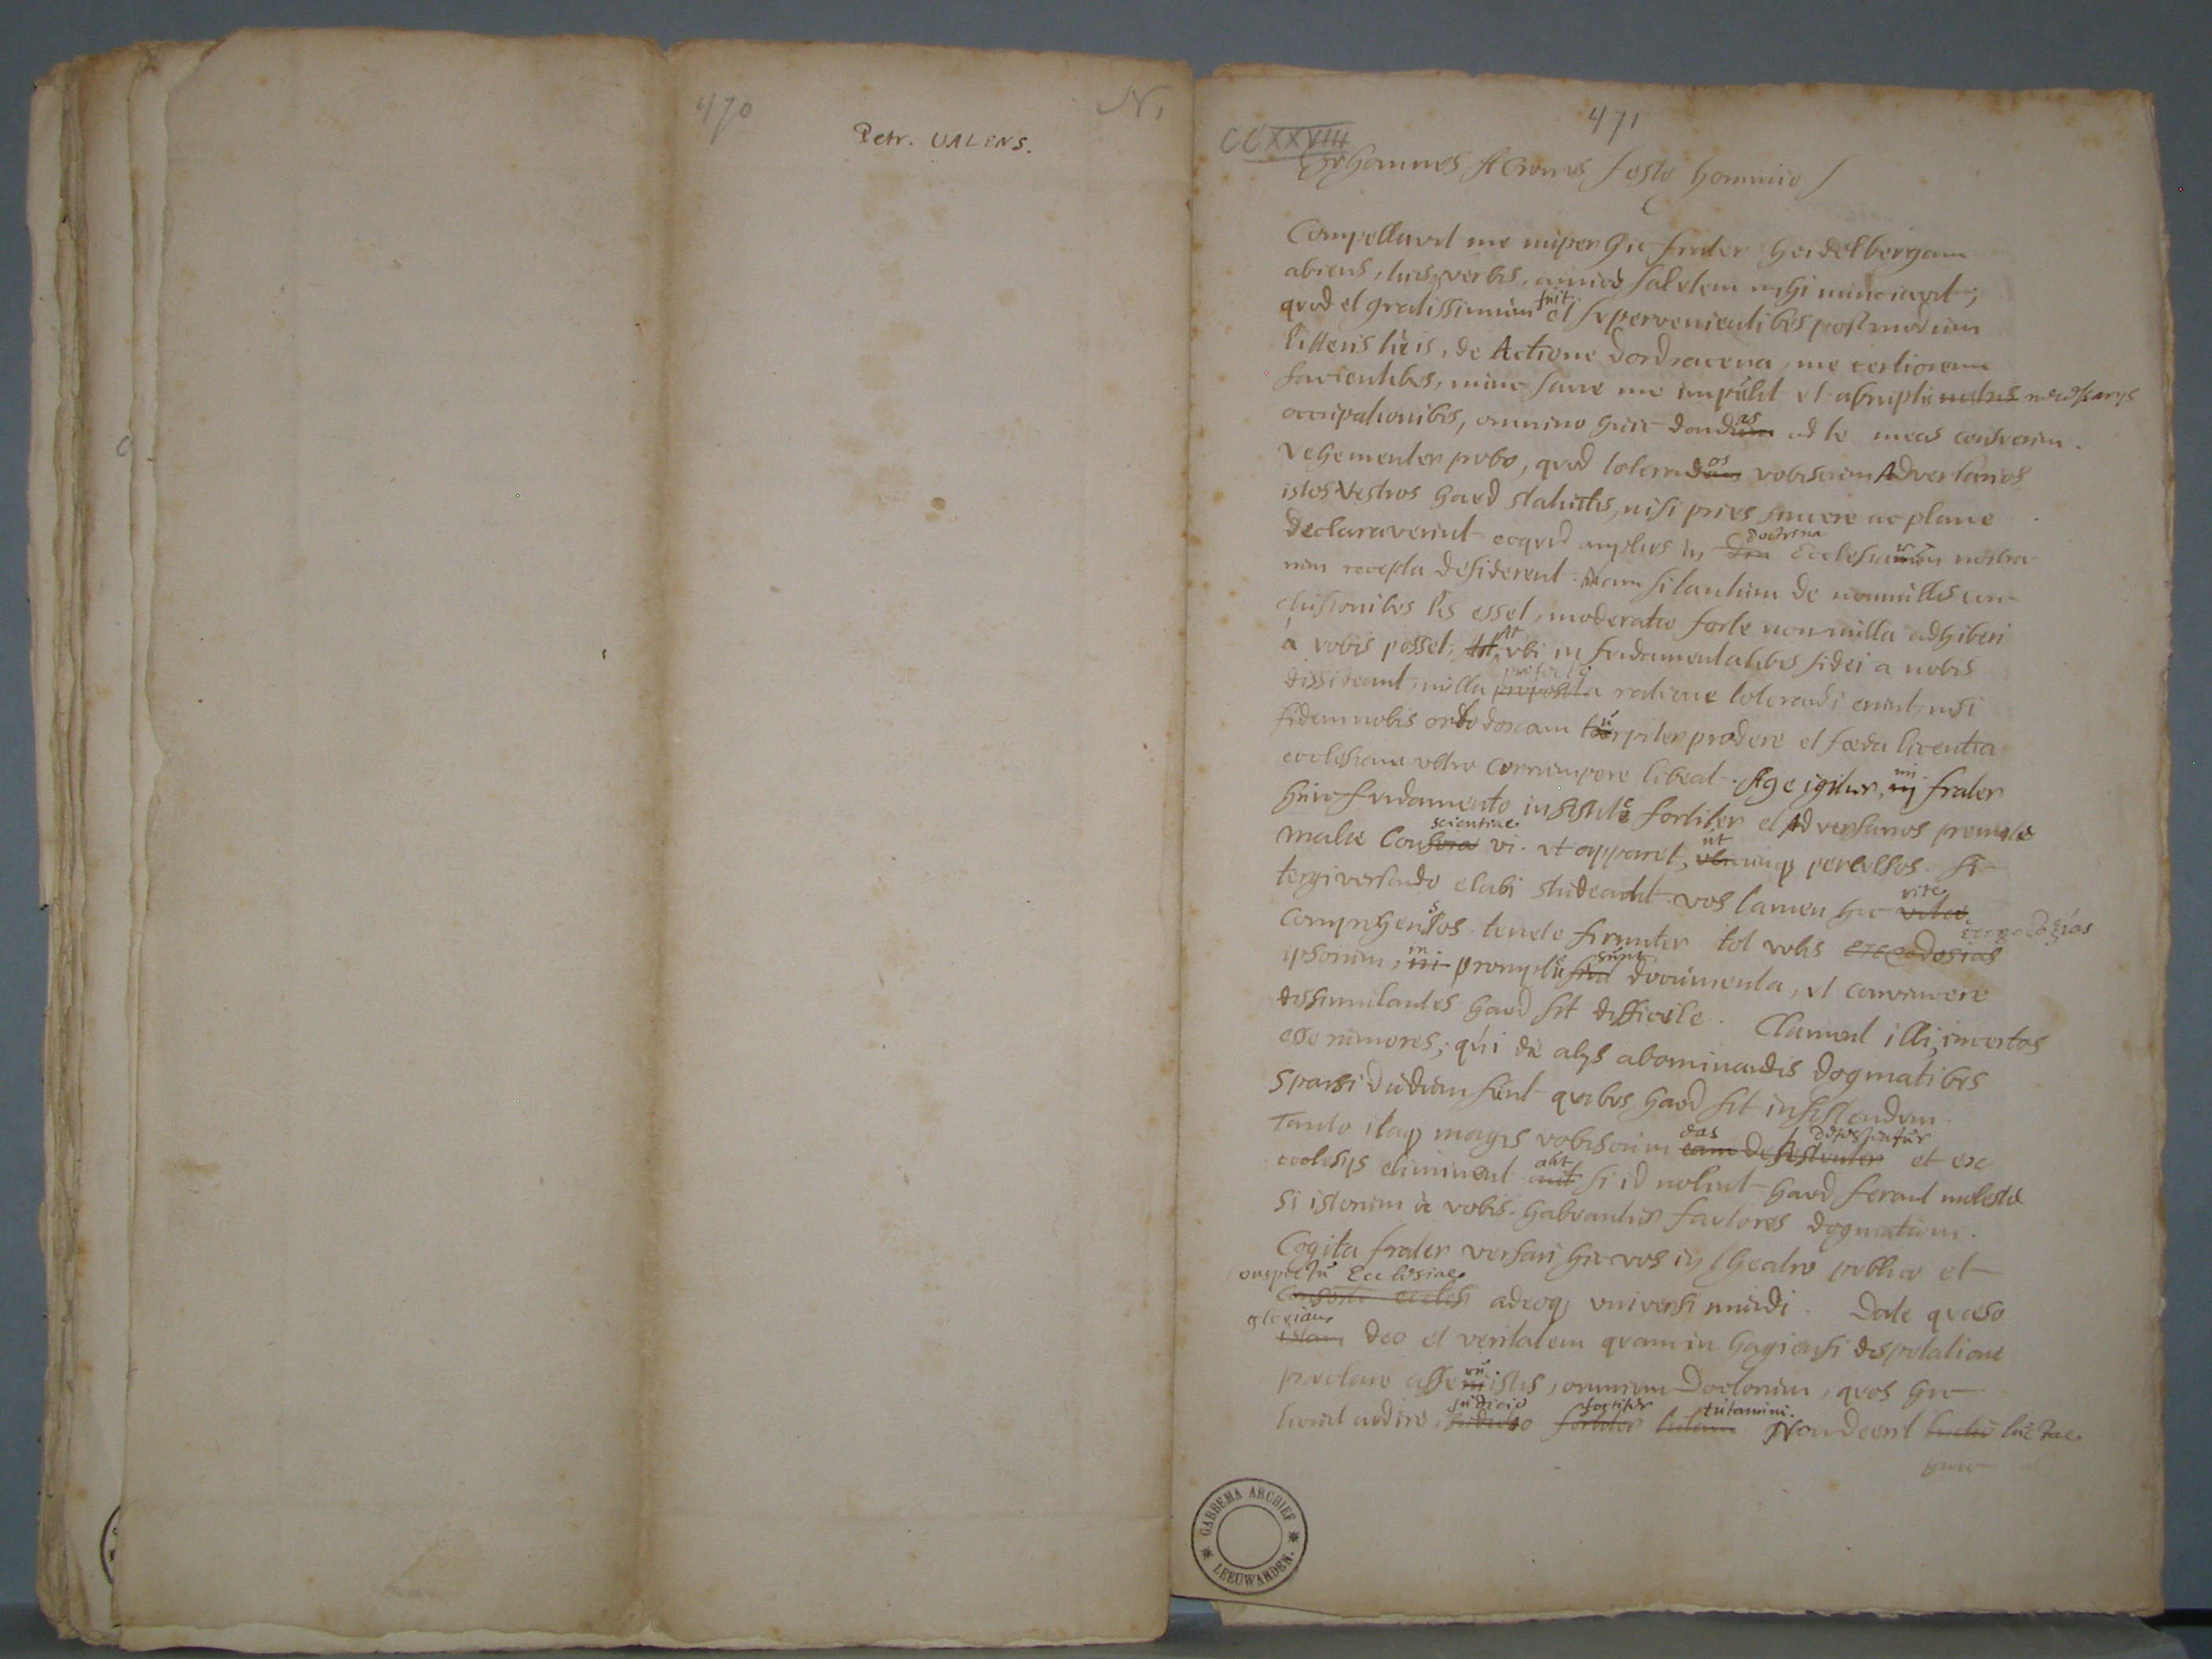 470
N,
Petr. VALENS.
471
CCXXVIII
Johannes Acronius Festo Hommio S
Compellavit me nuper hic frater Heidelbergam
abiens, tuis verbis, amicè salutem mihi nunciavit;
quod et gratissimum fuit. et supervenientibus postmodum
litteris tuis, de Actione Dordracena, me certiorem
facientibus, nunc sane me impulit ut abruptis necessarijs
occupationibus, omnino huic dandas ad te meas censerim.
Vehementer probo, quod tolerandos vobiscum Adversarios
istos vestros haud statuitis, nisi prius sincere ac plane
declaraverint ecquid amplius in dra doctrina Ecclesiarum nostra-
rum recepta desiderent. Nam si tantum de nonnullis con-
clusionibus lis esset, moderatio forte nonnulla adhiberi
à vobis posset, At ubi in fundamentalibus fidei a nobis
dissideant, nulla proposita profecto ratione tolerandi erunt, nisi
fidem nobis ortodoxam turpiter prodere et foeda licentia
ecclesiam ultro corrumpere libeat. Age igitur, mi frater
huic fundamento insistite fortiter et Adversarios premite
malae Conscientiae vi. ut apparet, utcunq perculsos. Si
tergiversando elabi studeant vos tamen hic rite
comprehensos tenete firmiter tot vobis
ipsorum, in promptu sunt documenta, ut convincere
dissimulantes haud sit difficile. Clament illi, incertos
esse rumores; qui de alijs abominandis dogmatibus
sparsi dudum sunt quibus haud sit insistendum
Tanto itaq magis vobiscum eas detestentur et ex
ecclesijs eliminent aut si id nolint haud ferant moleste
si istorum à vobis habeantur fautores dogmatum.
Cogita frater versari hic vos in theatro publico et
conspectu Ecclesiae
adeoq universi mundi. Date quaeso
gloriam
istam Deo et veritatem quam in hagiensi disputatione
praeclare asseruistis, omnium Doctorum, quos hic
licuit audire, judicio fortiter tutamini. Non deerit luctae
huic
GABBEMA ARCHIEF * LEEUWARDEN. *